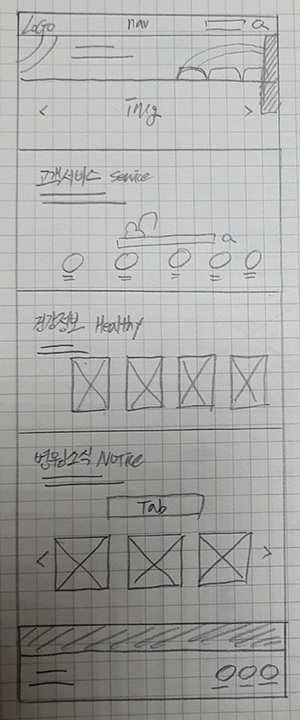 LOGO nav
< img >
고객서비스 Service
건강정보 Healthy
병원소식 NOTICE
Tab
< >